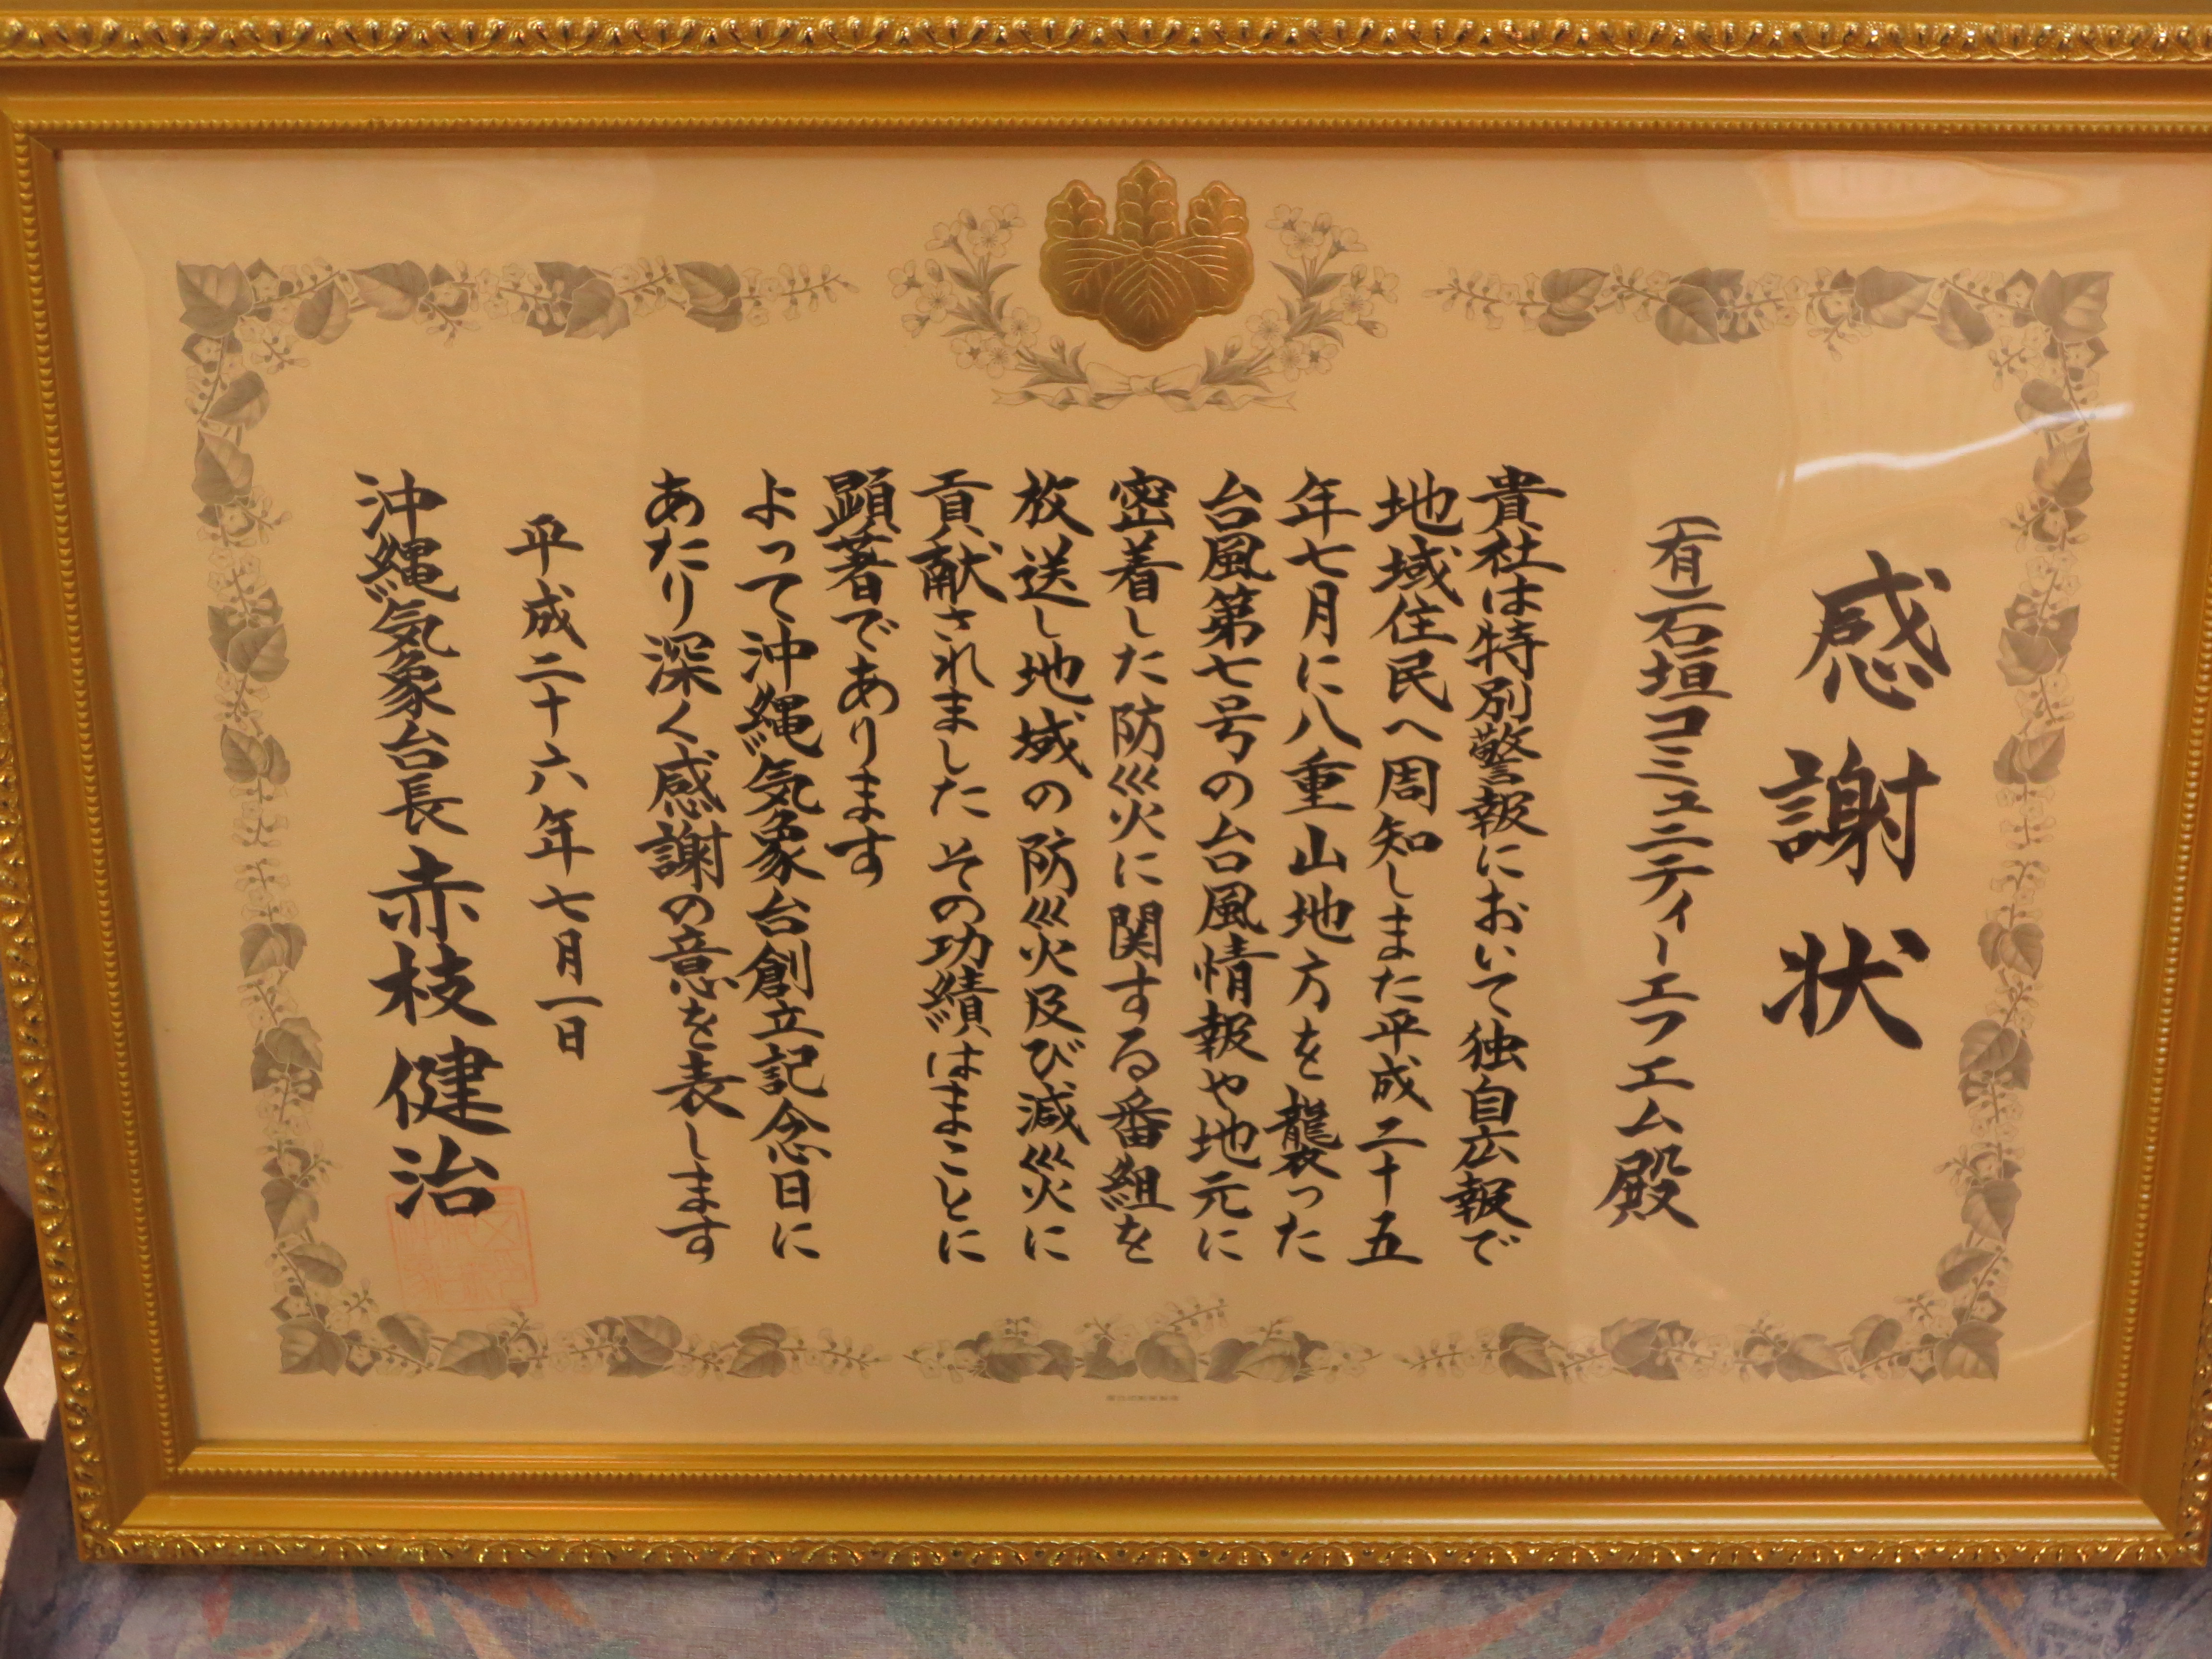 感謝状
(有)石垣コミュニティーエフエム殿
貴社は特別警報において独自広報で
地域住民へ周知しまた平成二十五
年七月に八重山地方を襲った
台風第七号の台風情報や地元に
密着した防災に関する番組を
放送し地域の防災及び減災に
貢献されました その功績はまことに
顕著であります
よって沖縄気象台創立記念日に
あたり深く感謝の意を表します
平成二十六年七月一日
沖縄気象台長 赤枝健治